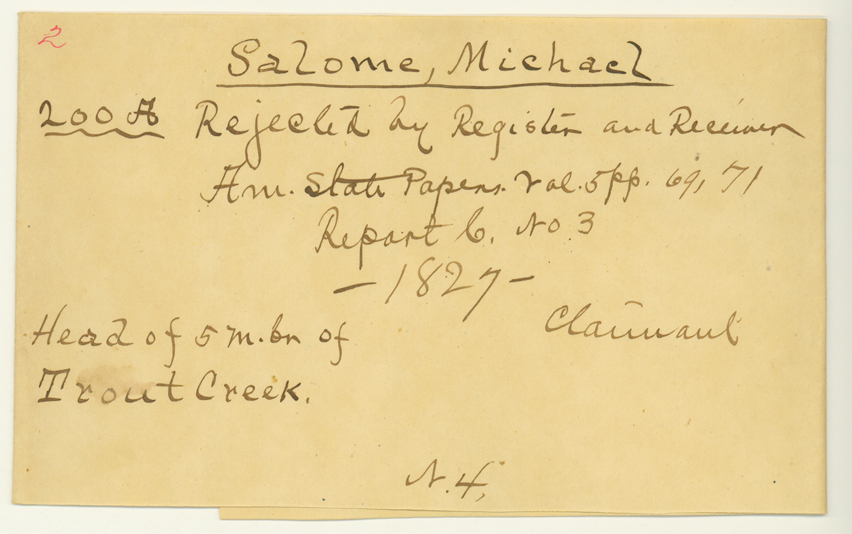 2
Salome, Michael
200 A Rejected by Register and Receiver
Am. State Papers. Vol. 5 pp. 69, 71
Report C. No 3
- 1827 -
Claimant
Head of 5 m. bn of
Trout Creek.
N. 4,